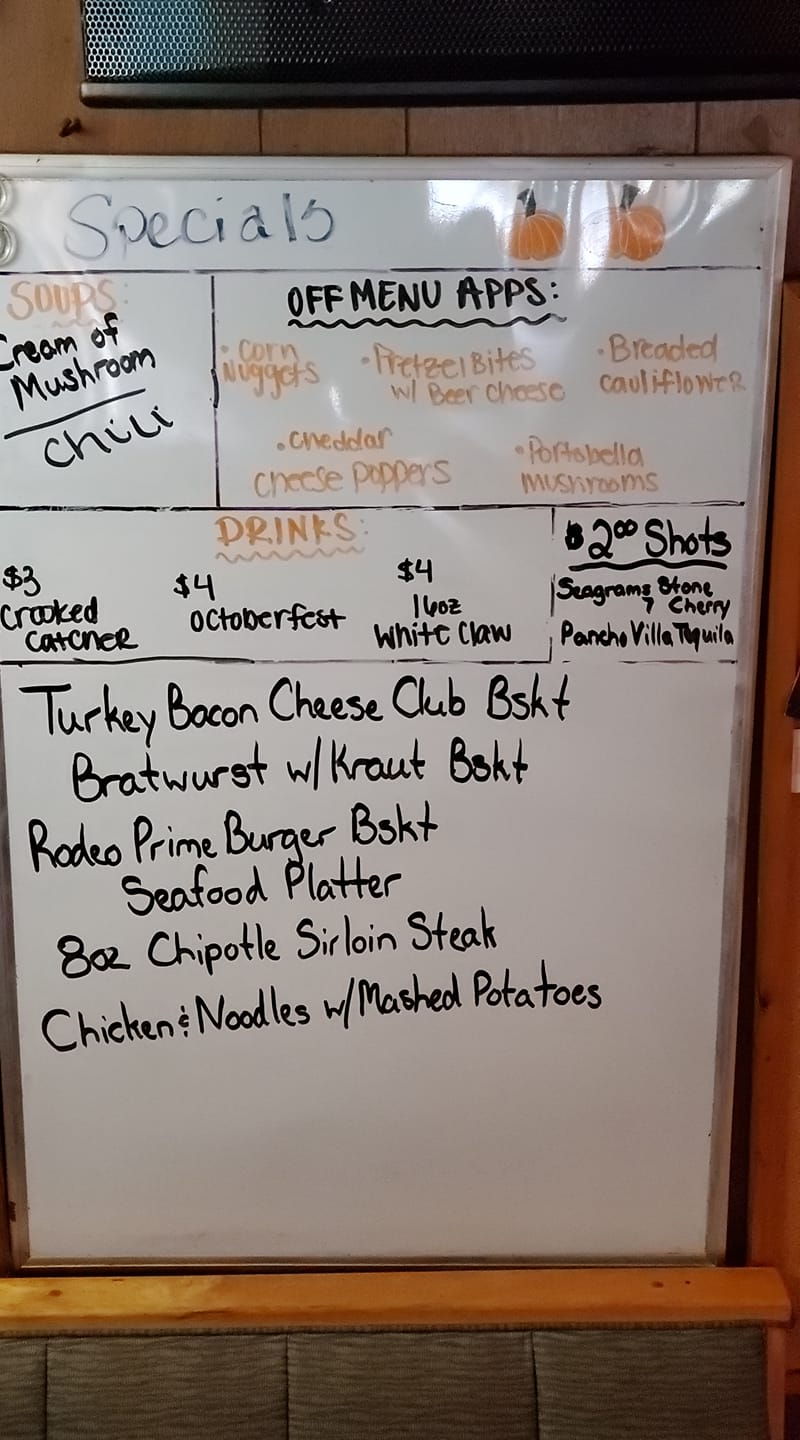 Specials
SOUPS:
Cream of
Mushroom
Chili
OFF MENU APPS:
• Corn
Nuggets
• Pretzel Bites
w/ Beer cheese
• Breaded
cauliflower
• cheddar
cheese poppers
• Portobella
mushrooms
DRINKS:
$3
Crooked
Catcher
$4
Octoberfest
$4
16oz
White Claw
$2⁰⁰ Shots
Seagrams Stone
7 Cherry
Pancho Villa Tequila
Turkey Bacon Cheese Club Bskt
Bratwurst w/ Kraut Bskt
Rodeo Prime Burger Bskt
Seafood Platter
8oz Chipotle Sirloin Steak
Chicken & Noodles w/ Mashed Potatoes